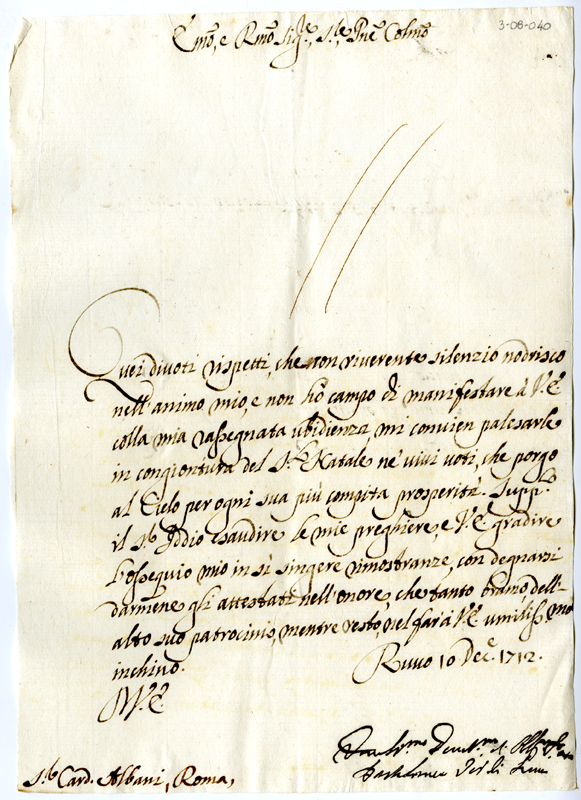 3-08-040
Em̃o, e Rm̃o Sig.re, S.re Pñe Colm̃o
Quei divoti rispetti, che con riverente silenzio nodrisco
nell'animo mio, e non hò campo di manifestare à V.E.
colla mia rassegnata ubidienza, mi convien palesarle
in congiontura del S.to Natale ne' vivi voti, che porgo
al Cielo per ogni sua più compita prosperità. Supp.co
il S.r Iddio esaudire le mie preghiere, e V.E. gradire
l'ossequio mio in sì singere rimostranze, con degnarsi
darmene gli attestati nell'onore, che tanto bramo, dell'-
alto suo patrocinio, mentre resto, nel far à V.E. umiliss.mo
inchino.
Ruvo 10 Dec.e 1712.
D V.E.
S.r Card. Albani, Roma,